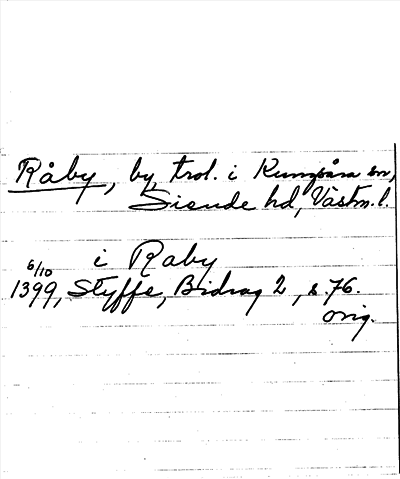 Råby, by, trol. i Kungsåra sn,
Siende hd, Västm. l.
i Raby
6/10
1399, Styffe, Bidrag 2, s. 76.
orig.